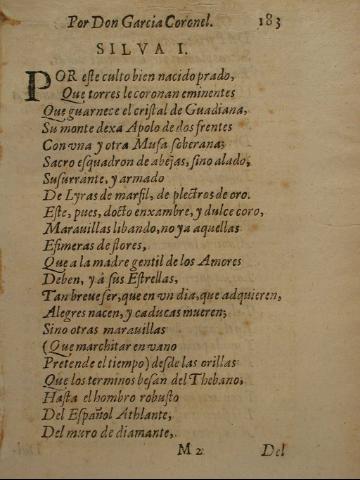 Por Don Garcia Coronel. 183
SILVA I.
POR este culto bien nacido prado,
Que torres le coronan eminentes
Que guarnece el cristal de Guadiana,
Su monte dexa Apolo de dos frentes
Con vna y otra Musa soberana;
Sacro esquadron de abejas, sino alado,
Susurrante, y armado
De Lyras de marfil, de plectros de oro.
Este, pues, docto enxambre, y dulce coro,
Marauillas libando, no ya aquellas
Efimeras de flores,
Que a la madre gentil de los Amores
Deben, y à sus Estrellas,
Tan breue ser, que en vn dia, que adquieren,
Alegres nacen, y caducas mueren;
Sino otras marauillas
(Que marchitar en vano
Pretende el tiempo) desde las orillas
Que los terminos besan del Thebano,
Hasta el hombro robusto
Del Español Athlante,
Del muro de diamante,
M 2 Del